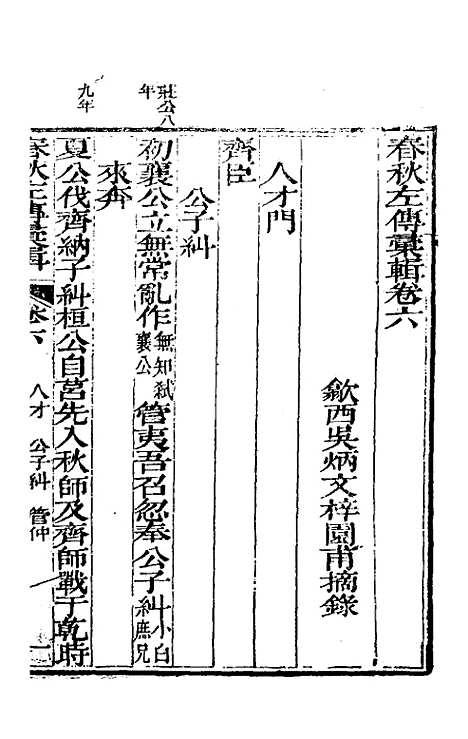 春秋左傳彙輯卷六
歙西吳炳文梓園甫摘錄
人才門
齊臣
公子糾
莊公八年
初襄公立無常亂作無知弒襄公管夷吾召忽奉公子糾小白庶兄
來奔
九年
夏公伐齊納子糾桓公自莒先入秋師及齊師戰于乾時
春秋左傳彙輯 卷六 人才 公子糾 管仲 一